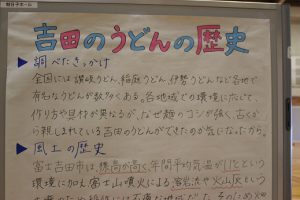 吉田のうどんの歴史
▶ 調べたきっかけ
全国には讃岐うどん、稲庭うどん、伊勢うどんなど各地で
有名なうどんが数多くある。各地域での環境に応じて、
作り方や具材が異なるが、なぜ麺のコシが強く、古くか
ら親しまれている吉田のうどんができたのか気になったから。
▶ 風土の歴史
富士吉田市は、標高が高く、年間平均気温が11℃という
環境に加え富士山噴火による溶岩流や火山灰という